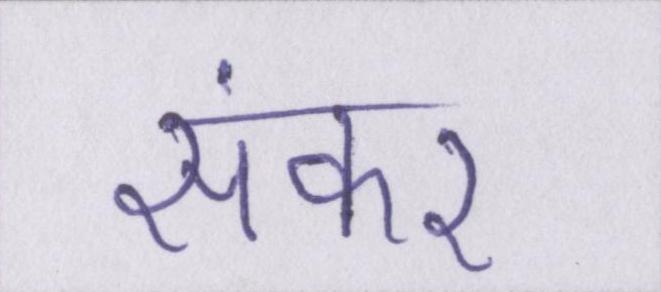 संकर